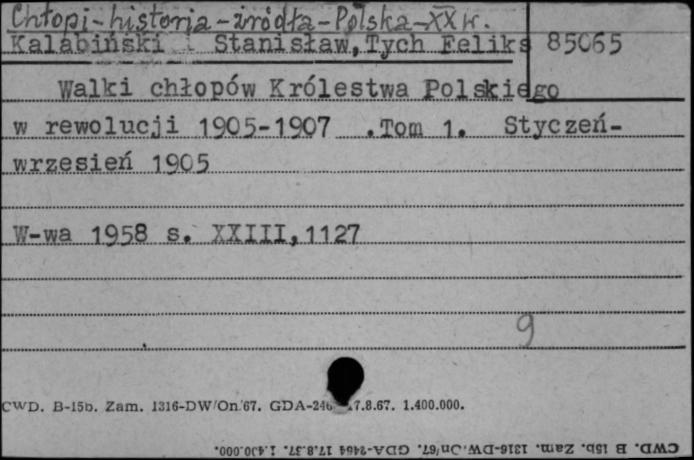 Chłopi-historia-źródła-Polska-XXw.
Kalabiński Stanisław, Tych Feliks 85065
Walki chłopów Królestwa Polskiego
w rewolucji 1905-1907 .Tom 1. Styczeń-
wrzesień 1905
W-wa 1958 s. XXIII,1127
9
CWD. B-15b. Zam. 1316-DW/On/67. GDA-246 17.8.67. 1.400.000.
CWD. B 15b. Zam. 1316-DW.On/67. GDA-2464 17.8.37. 1.400.000.